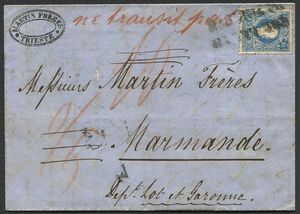 MARTIN FRÈRES
TRIESTE
ne transit p
Messieurs Martin Frères
Marmande
Dept Lot et Garonne.